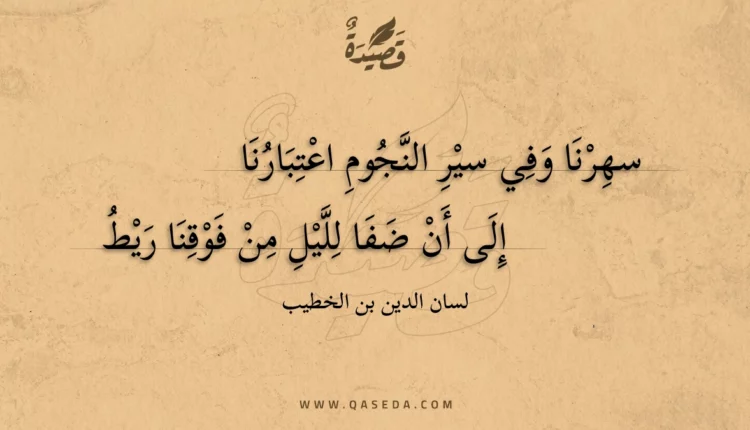 قَصِيْدَةٌ
سهِرْنَا وَفِي سيْرِ النَّجُومِ اعْتِبَارُنَا
إِلَى أَنْ ضَفَا لِلَّيْلِ مِنْ فَوْقِنَا رَيْطُ
لسان الدين بن الخطيب
WWW.QASEDA.COM